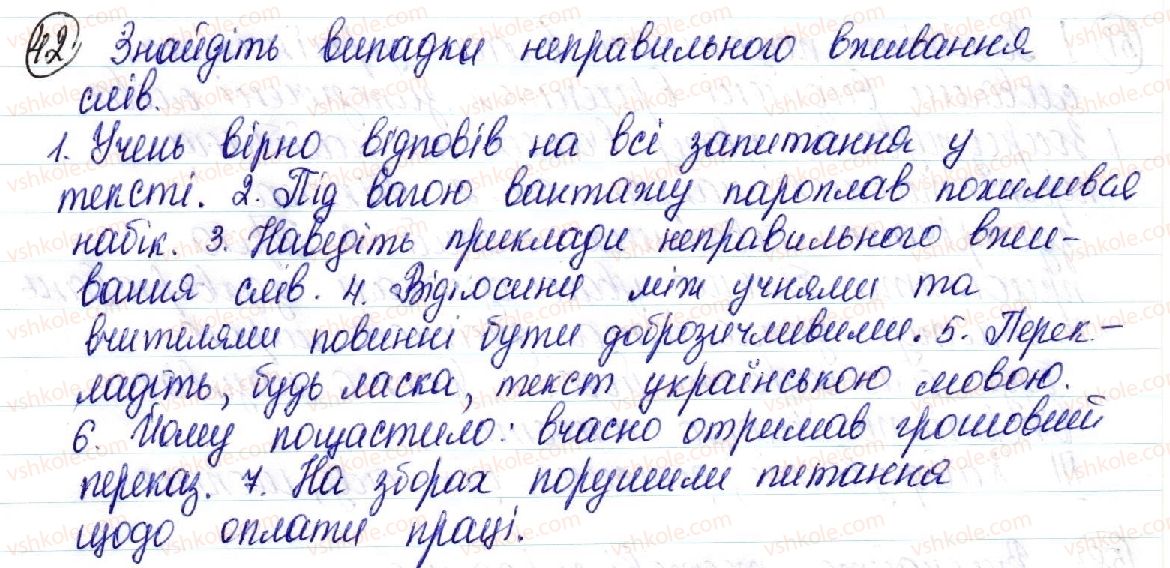 42. Знайдіть випадки неправильного вживання
слів.
1. Учень вірно відповів на всі запитання у
тексті. 2. Під вагою вантажу пароплав похилився
набік. 3. Наведіть приклади неправильного вжи-
вання слів. 4. Відносини між учнями та
вчителями повинні бути доброзичливими. 5. Перек-
ладіть, будь ласка, текст українською мовою.
6. Йому пощастило: вчасно отримав грошовий
переказ. 7. На зборах порушили питання
щодо оплати праці.